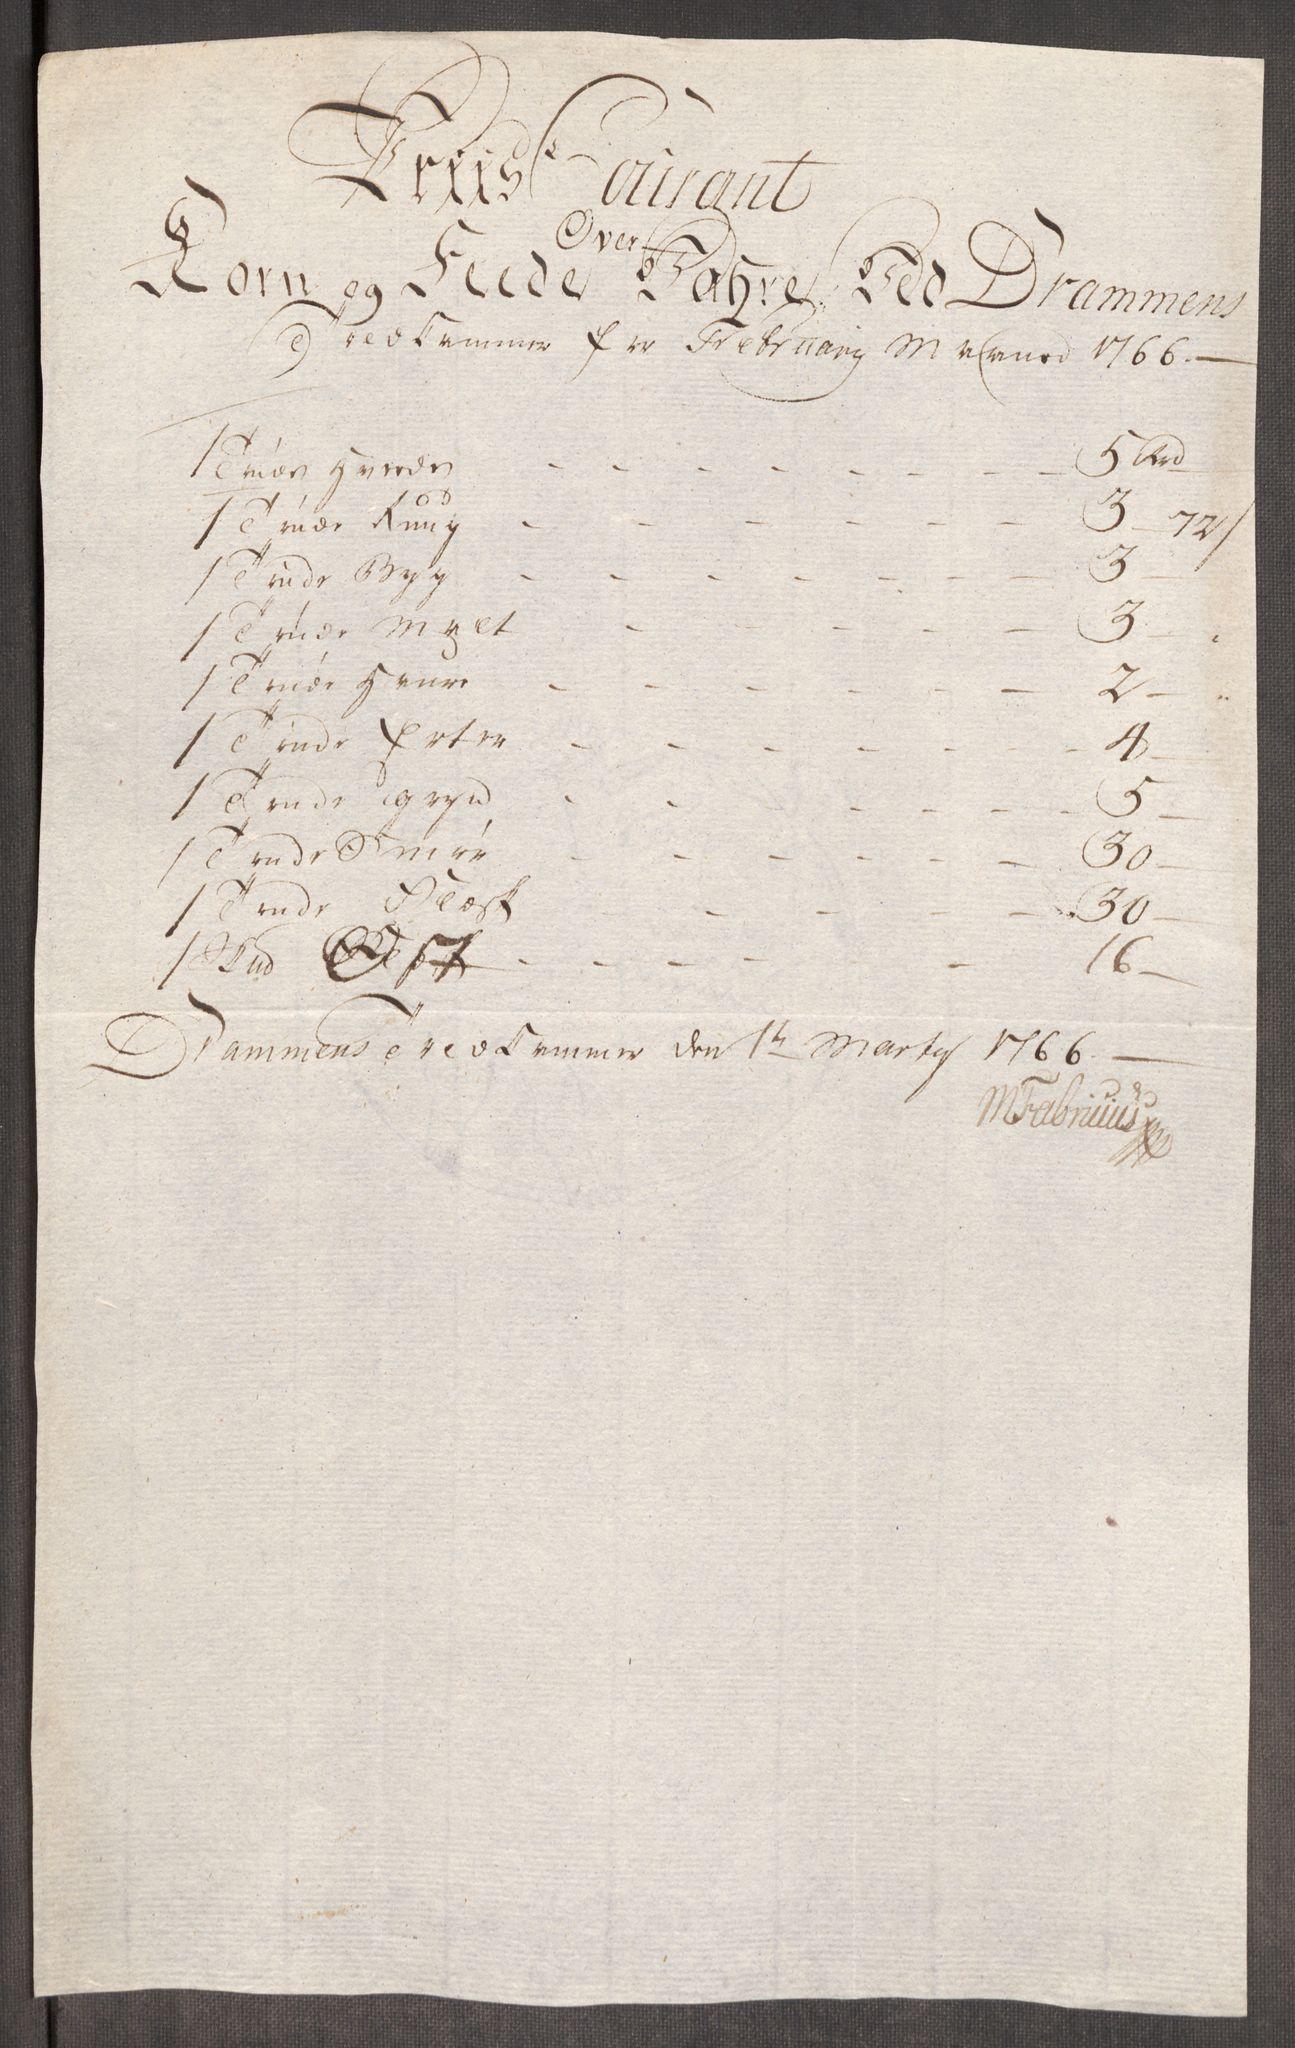 Priis Courant
Over
Korn og Feede Vahre Ved Drammens
Toldkammer for February Maaned 1766.
1 Tønde Hvede - - - - - - 5 Rd
1 Tønde Rug - - - - - - 3 - 72 s
1 Tønde Byg - - - - - - 3 -
1 Tønde Malt - - - - - 3
1 Tønde Havre - - - - - - 2 -
1 Tønde Erter - - - - - - 4 -
1 Tønde gryn - - - - - - 5 -
1 Tønde Smør - - - - - 30 -
1 Tønde Flæsk - - - - - 30 -
1 - - - - - 16 -
Drammens Toldkammer den 1te Marty 1766.
MFabricius